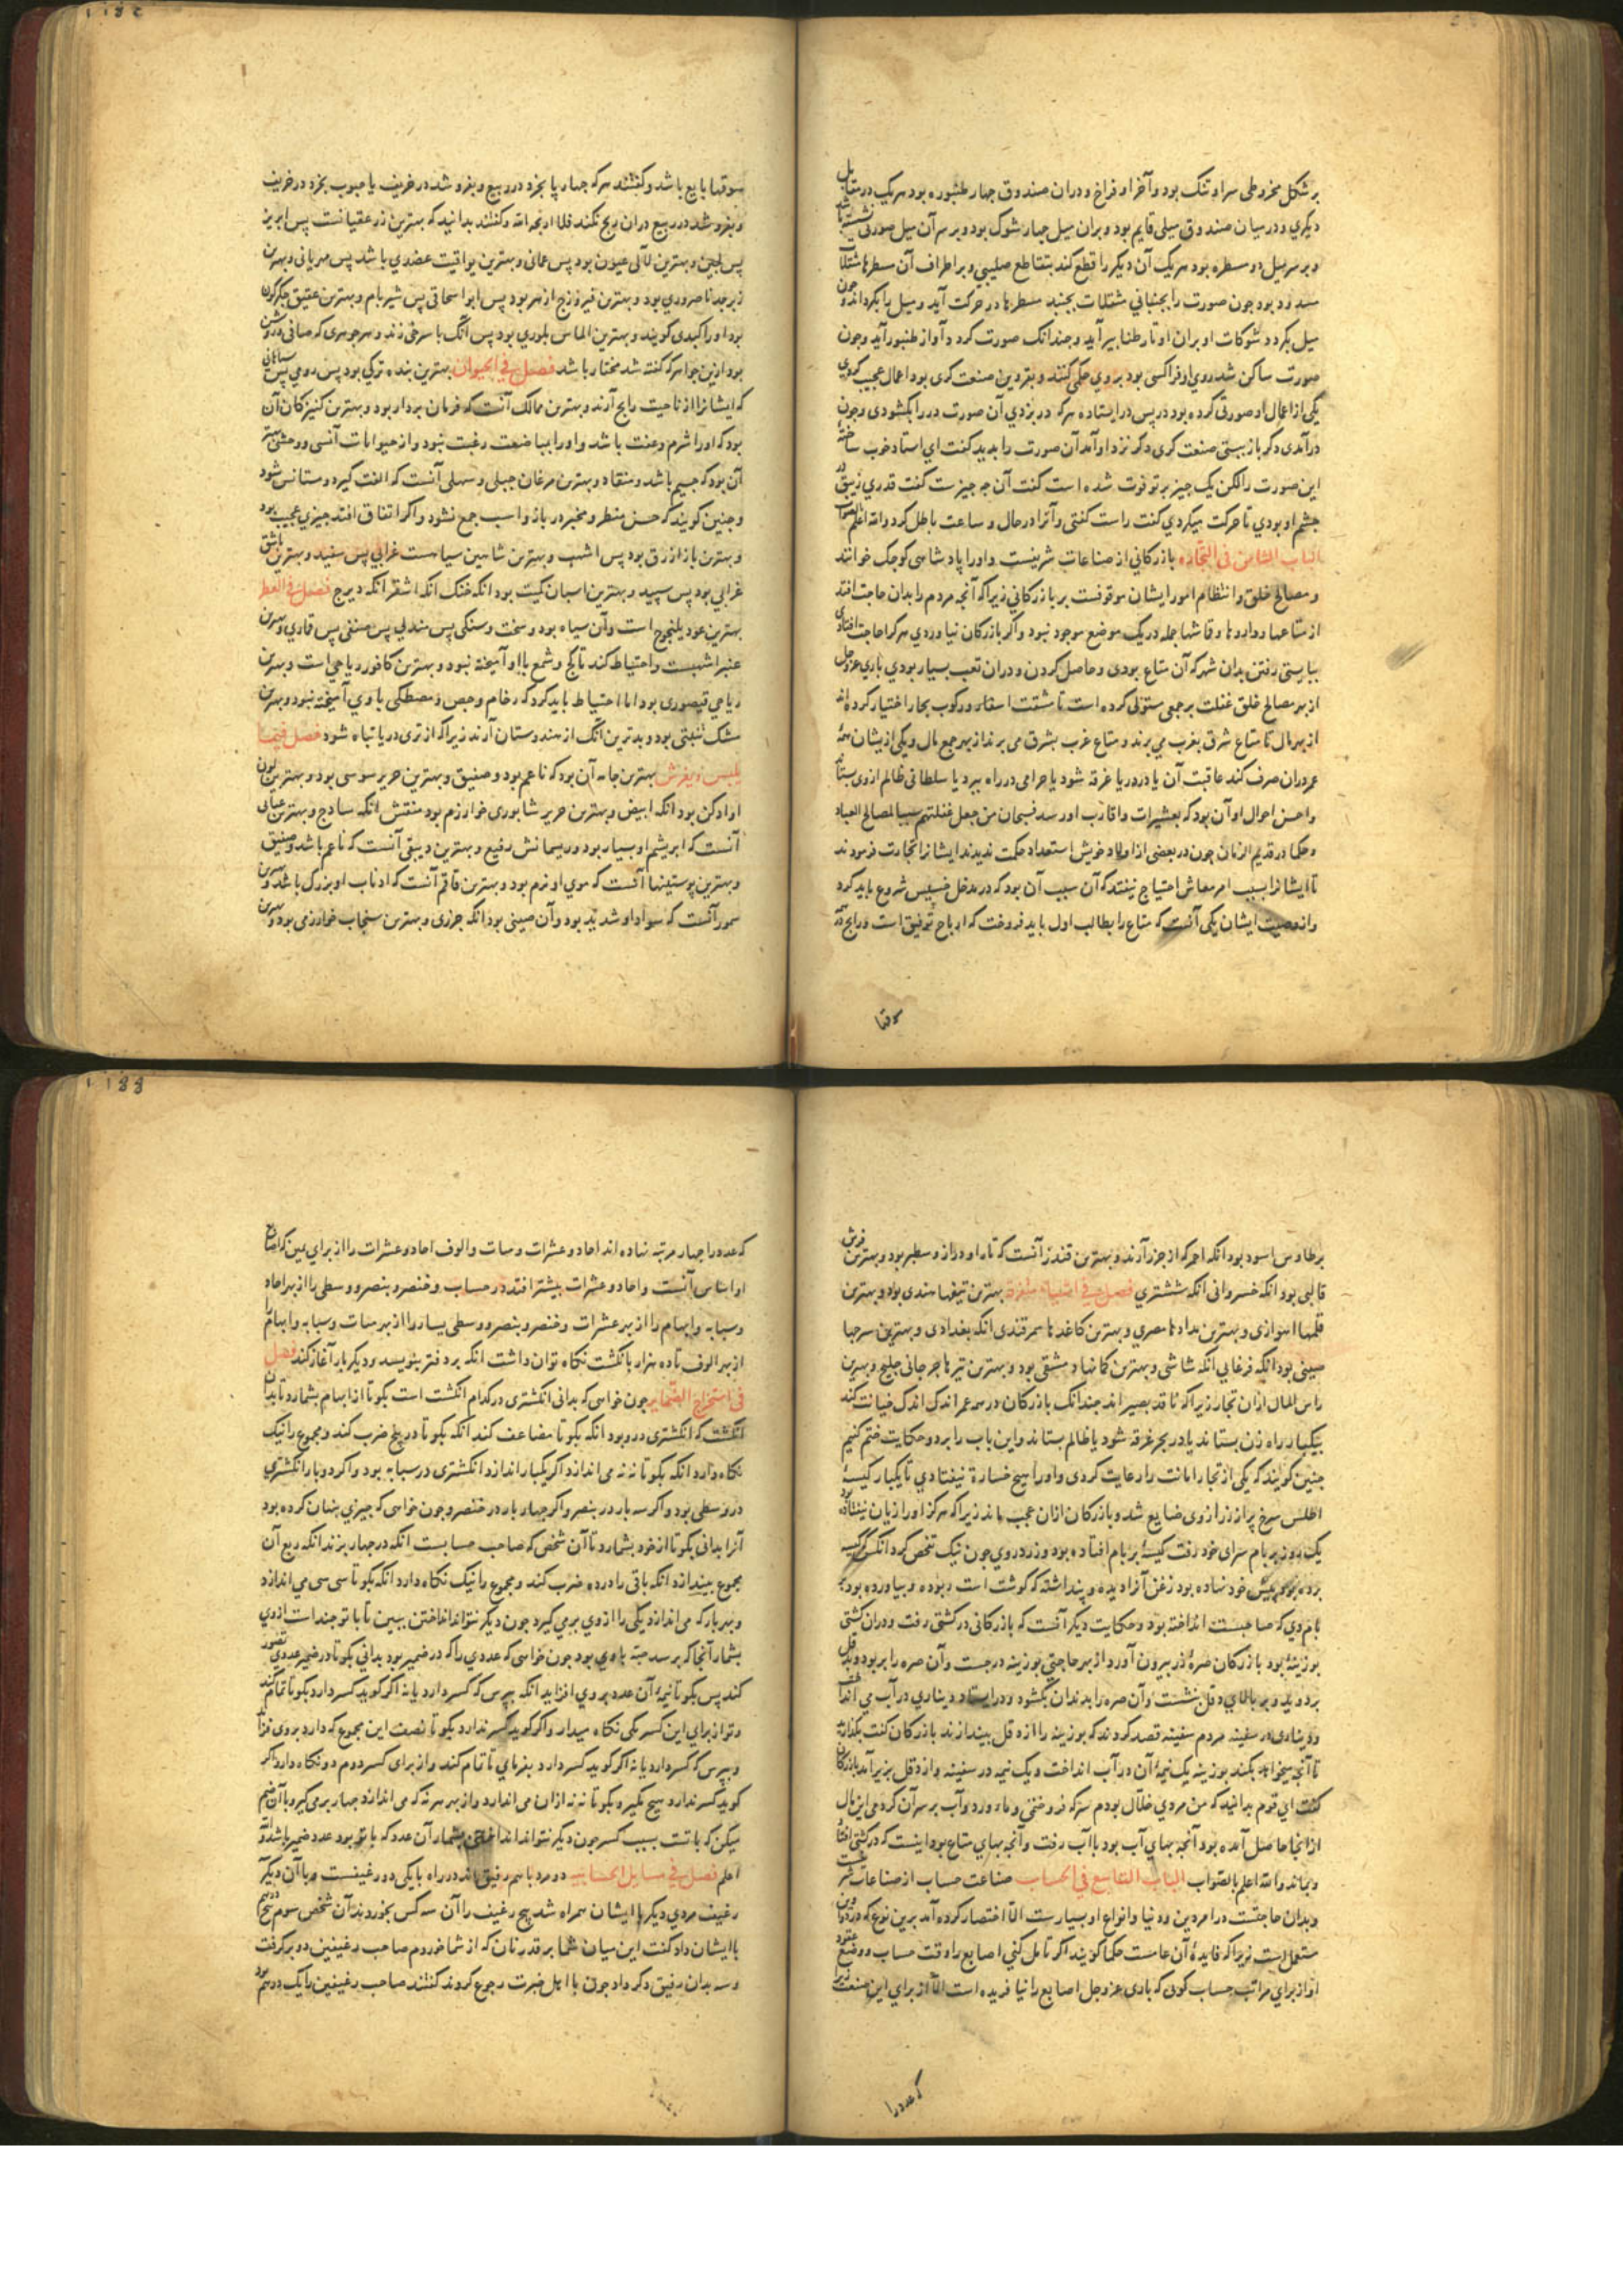 بر شکل مخروطی سر او تنک بود و آخر او فراخ و دران صندوق جهار طنبوره بود هر یک در مقابل
دیکری و در میان صندوق میلی قایم بود و بران میل جهار شوک بود و بر سر آن میل صورتی نشسته باشد
و بر سر میل دو مسطره بود هر یک آن دیکر را قطع کند بتقاطع صلیبی و بر اطراف آن مسطرها مثقلات
مسدود بود جون صورت را بجنبانی مثقلات بجنبد مسطرها در حرکت آید و میل را بکرداند و جون
میل بکردد شوکات او بران اوتار طنابیر آید و جندانک صورت کردد آواز طنبور آید و جون
صورت ساکن شد روی او فرا کسی بود بر وی حکم کنند و بقزوین صنعت کری بود اعمال عجیب کردی
یکی از اعمال او صورتی کرده بود در پس در ایستاده هر که در بزدی آن صورت در را بکشودی و جون
در آمدی دکر باز ببستی صنعت کری دکر نزد او آمد آن صورت را بدید کفت ای استاد خوب ساخته
این صورت را لکن یک جیز بر تو فوت شده است کفت آن جه جیزست کفت قدری زیبق در
جشم او بودی تا حرکت میکردی کفت راست کفتی و آنرا در حال و ساعت باطل کرد والله اعلم بالصواب
الباب الثامن فی التجاره بازرکانی از صناعات شریفست و او را پادشاهی کوجک خوانند
و مصالح خلق و انتظام امور ایشان موقوفست بر بازرکانی زیرا که آنجه مردم را بدان حاجت افتد
از متاعها و داروها و قماشها جمله در یک موضع موجود نبود و اکر بازرکان نیاوردی هر کرا حاجت افتادی
ببایستی رفتن بدان شهر که آن متاع بودی و حاصل کردن و دران تعب بسیار بودی باری عز و جل
از بهر مصالح خلق غفلت بر جمعی مستولی کرده است تا مشقت اسفار و رکوب بحار اختیار کرده اند
از بهر مال تا متاع شرق بغرب می برند و متاع غرب بشرق می برند از بهر جمع مال و یکی ازیشان همه
عمر دران صرف کند عاقبت آن یا در دریا غرقه شود یا حرامی در راه ببرد یا سلطانی ظالم از وی بستاند
و احسن احوال او آن بود که بعشیرات و اقارب او رسد فسبحان من جعل غفلتهم سببا لمصالح العباد
و حکما در قدیم الزمان جون در بعضی از اولاد خویش استعداد حکمت ندیدند ایشانرا تجارت فرمودند
تا ایشانرا بسبب امر معاش احتیاج نیفتد که آن سبب آن بود که در مدخل خسیس شروع باید کرد
و از وصیت ایشان یکی آنست که متاع را بطالب اول باید فروخت که ارباح توفیق است و رابح در
سوقها
سوقها بایع باشد و کفتند هر که جهارپا بخرد در ربیع و بفروشد در خریف یا حبوب بخرد در خریف
و بفروشد در ربیع دران ربح نکند فلا اربحه الله و کفتند بدانید که بهترین زر عقیانست پس ابریز
پس لجین و بهترین لآلی عیون بود پس عمانی و بهترین یواقیت عضدی باشد پس مهریانی و بهترین
زبرجد ناصروری بود و بهترین فیروزج ازهر بود پس ابواسحاقی پس شیربام و بهترین عقیق جکرکون
بود او را کبدی کویند و بهترین الماس بلوری بود پس آنک با سرخی زند و هر جوهری که صافی و روشن
بود ازین جواهر که کفته شد مختار باشد فصل فی الحیوان بهترین بنده ترکی بود پس رومی پس
که ایشانرا از ناحیت رابح آرند و بهترین ممالک آنست که فرمان بردار بود و بهترین کنیزکان آن
بود که او را شرم و عفت باشد و او را بمباضعت رغبت نبود و از حیوانات انسی و وحشی بهتر
آن بود که جسیم باشد و منقاد و بهترین مرغان جبلی و سهلی آنست که الفت کیرد و مستانس شود
و جنین کویند که حسن منظر و مخبر در باز و اسب جمع نشود و اکر اتفاق افتد جیزی عجیب بود
و بهترین باز ازرق بود پس اشهب و بهترین شاهین سیاهست غرابی پس سفید و بهترین باشق
غرابی بود پس سپید و بهترین اسبان کمیت بود آنکه خنک آنکه اشقر آنکه دیزج فصل فی العطر
بهترین عود یلنجوج است و آن سیاه بود و سخت و سنکی پس مندلی پس صنفی پس قماری و بهترین
عنبر اشهبست و احتیاط کند تا کج و شمع با او آمیخته نبود و بهترین کافور ریاحی است و بهترین
ریاحی قیصوری بود اما احتیاط باید کرد که رخام و جص و مصطکی با وی آمیخته نبود و بهترین
مشک تبتی بود و بدترین آنک از هندوستان آرند زیرا که از تری دریا تباه شود فصل فیما
یلبس و یفرش بهترین جامه آن بود که ناعم بود و صفیق و بهترین حریر سوسی بود و بهترین لون
او ادکن بود آنکه ابیض و بهترین حریر شابوری خوارزم بود منقش آنکه ساذج و بهترین عتابی
آنست که ابریشم او بسیار بود و ریسمانش رفیع و بهترین دبیقی آنست که ناعم باشد و صفیق
و بهترین پوستینها آنست که موی او نرم بود و بهترین قاقم آنست که اذناب او بزرک باشد و بهترین
سمور آنست که سواد او شدید بود و آن صینی بود آنکه جزری و بهترین سنجاب خوارزمی بود و بهترین
برطاوس اسود بود آنکه احمر که از جزر آرند و بهترین قندز آنست که تار او دراز و سطبر بود و بهترین فرش
قالی بود آنکه خسروانی آنکه ششتری فصل فی اشیاء مفرده بهترین تیغها هندی بود و بهترین
قلمها اهوازی و بهترین مدادها مصری و بهترین کاغدها سمرقندی آنکه بغدادی و بهترین سرجها
صینی بود آنکه فرغانی آنکه شاشی و بهترین کمانها دمشقی بود و بهترین تیرها جرجانی خلیج و بهترین
راس المال ازان تجار زیرا که ناقد بصیر اند جندانک بازرکان در همه عمر اندک اندک خیانت کند
بیکبار راه زن بستاند یا در بحر غرقه شود یا ظالم بستاند و این باب را بر دو حکایت ختم کنیم
جنین کویند که یکی از تجار امانت را رعایت کردی و او را هیچ خسارة نیفتادی تا یکبار کیسهٔ
اطلس سرخ پر از زر از وی ضایع شد و بازرکان ازان عجب ماند زیرا که هرکز او را زیان نیفتاده بود
یک روز بر بام سرای خود رفت کیسهٔ بر بام افتاده بود و زر در وی جون نیک تفحص کرد آنکس کیسه
برده بود و پیش خود نهاده بود زغن آنرا دیده و پنداشته که کوشت است ربوده و بیاورده بود بر
بام مردی که صاحبست انداخته بود و حکایت دیکر آنست که بازرکانی در کشتی رفت و دران کشتی
بوزینهٔ بود بازرکان صرهٔ زر بیرون آورد از بهر حاجتی بوزینه درجست و آن صره را بربود و بر دقل
بر دوید و بر بالای دقل بنشست و آن صره را بدندان بکشود و در ایستاد دیناری در آب می انداخت
و دیناری در سفینه مردم سفینه قصد کردند که بوزینه را از دقل بیندازند بازرکان کفت بکذارید
تا آنجه میخواهد بکند بوزینه یک نیمهٔ آن در آب انداخت و یک نیمه در سفینه و از دقل بزیر آمد بازرکان
کفت ای قوم بدانید که من مردی خلال بودم سرکه فروختمی و ماءورد و آب بر سر آن کردمی این مال
از انجا حاصل آمده بود آنجه بهای آب بود با آب رفت و آنجه بهای متاع بود اینست که در کشتی افتاد
و بماند والله اعلم بالصواب الباب التاسع فی الحساب صناعت حساب از صناعات شریفست
و بدان حاجتست در امر دین و دنیا و انواع او بسیارست الا اختصار کرده آمد برین نوع که در دواوین
مستعمل است زیرا که فایدهٔ آن عامست حکما کویند اکر تامل کنی اصابع را وقت حساب و وضع عقود
او از برای مراتب حساب کویی که باری عز و جل اصابع را نیافریده است الا از برای این صنعت زیرا
که عدد را
که عدد را جهار مرتبه نهاده اند احاد و عشرات و مئات و الوف احاد و عشرات را از برای یمین که اصابع
او اساس آنست و احاد و عشرات بیشتر افتد در حساب و خنصر و بنصر و وسطی را از بهر احاد
و سبابه و ابهام را از بهر عشرات و خنصر و بنصر و وسطی یسار را از بهر مئات و سبابه و ابهام را
از بهر الوف تا ده هزار بانکشت نکاه توان داشت آنکه بر دفتر بنویسد و دیکر بار آغاز کند فصل
فی استخراج الضمایر جون خواهی که بدانی انکشتری در کدام انکشت است بکو تا از ابهام بشمارد تا بدان
انکشت که انکشتری درو بود آنکه بکو تا مضاعف کند آنکه بکو تا در پنج ضرب کند و مجموع را نیک
نکاه دارد آنکه بکو تا نه نه می اندازد اکر یکبار اندازد انکشتری در سبابه بود و اکر دوبار انکشتری
در وسطی بود و اکر سه بار در بنصر و اکر جهار بار در خنصر و جون خواهی که جیزی پنهان کرده بود
آنرا بدانی بکو تا از خود بشمارد تا آن شخص که صاحب حسابست آنکه در جهار بزند آنکه ربع آن
مجموع بیندازد آنکه باقی را در ده ضرب کند و مجموع را نیک نکاه دارد آنکه بکو تا سی سی می اندازد
و بهر بار که می اندازد یکی را از وی برمی کیرد جون دیکر نتواند انداختن ببین تا با تو جندست از وی
بشمار آنجا که برسد خبیه با وی بود جون خواهی که عددی را که در ضمیر بود بدانی بکو تا در ضمیر عددی تصور
کند پس بکو تا نیمهٔ آن عدد بر وی افزاید آنکه بپرس که کسر دارد یا نه اکر کوید کسر دارد بکو تا تمام کند
و تو از برای این کسر یکی نکاه میدار و اکر کوید کسر ندارد بکو تا نصف این مجموع که دارد بر وی فزاید
و بپرس که کسر دارد یا نه اکر کوید کسر دارد بفرمای تا تمام کند و از برای کسر دوم دو نکاه دارد و اکر
کوید کسر ندارد هیچ مکیر و بکو تا نه نه ازان می اندازد و از بهر هر نه که می اندازد جهار برمی کیر و با آن ضم
میکن که با تست بسبب کسر جون دیکر نتواند انداختن بشمار آن عدد که با تو بود عدد ضمیر باشد والله
اعلم فصل فی مسایل الحسابیه دو مرد با هم رفیق اند در راه با یکی دو رغیفست و با آن دیکر سه
رغیف مردی دیکر با ایشان همراه شد پنج رغیف را آن سه کس بخوردند آن شخص سوم پنج درهم
با ایشان داد کفت این میان شما بر قدر نان که از شما خوردم صاحب رغیفین دو برکرفت
و سه بدان رفیق دکر داد جون با اهل خبرت رجوع کردند کفتند صاحب رغیفین را یک درهم بود